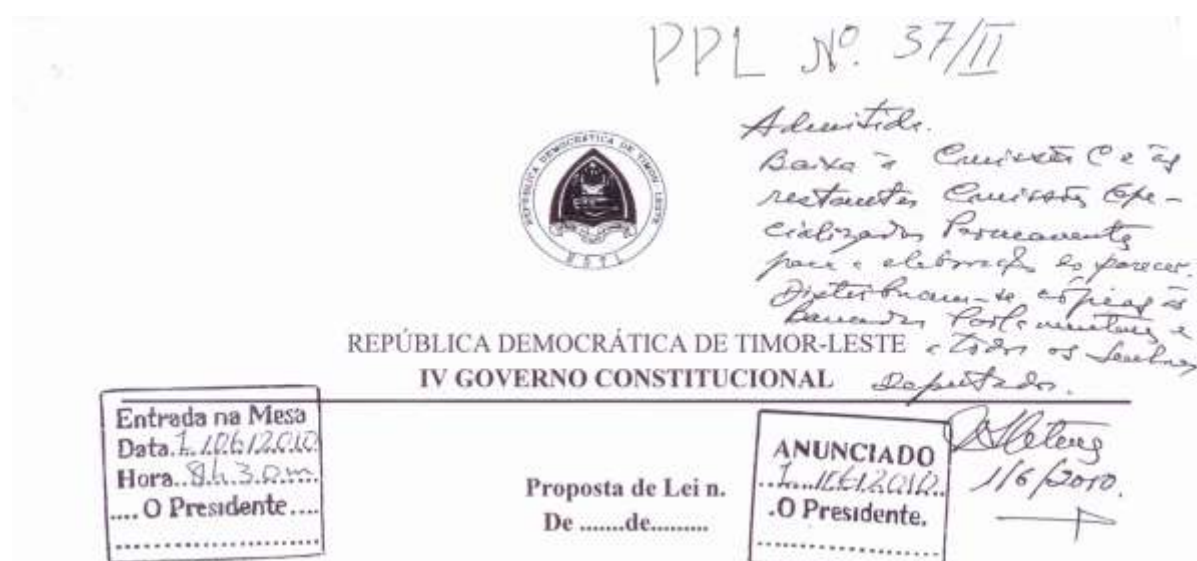 PPL Nº. 37/II
Admitida.
Baixa à Comissão C e às
restantes Comissões Espe-
cializadas Permanentes
para a elaboração do parecer.
Distribuam-se cópias às
Bancadas Parlamentares e
a todos os Senhores
Deputados.
1/6/2010.
REPÚBLICA DEMOCRÁTICA DE TIMOR-LESTE
RDTL
REPÚBLICA DEMOCRÁTICA DE TIMOR-LESTE
IV GOVERNO CONSTITUCIONAL
Entrada na Mesa
Data 1/06/2010
Hora..8h30m
.... O Presidente....
Proposta de Lei n.
De .......de.........
ANUNCIADO
1/06/2010
.O Presidente.